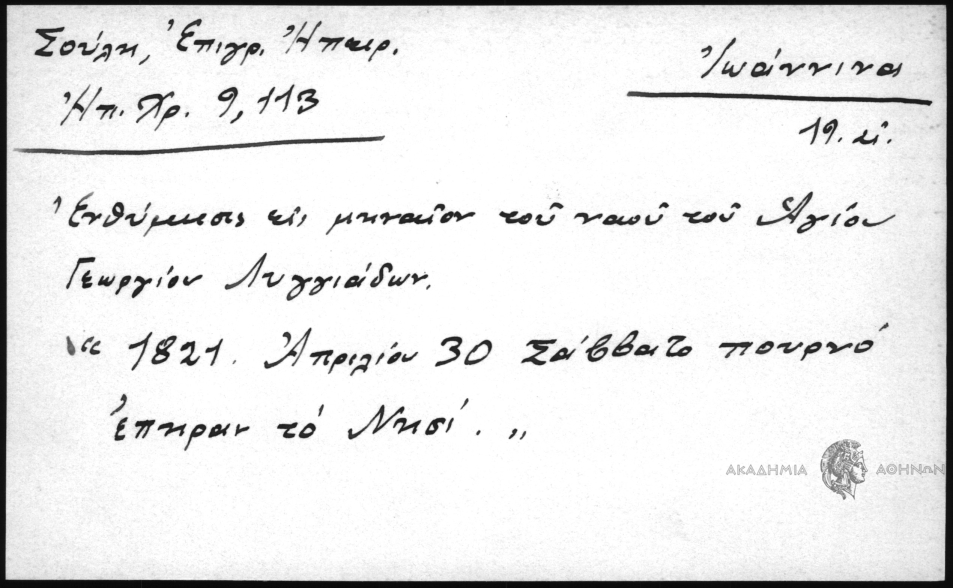 Σούλη, Ἐπιγρ. Ἠπειρ.
Ἠπ. Χρ. 9, 113
Ἰωάννινα
19. αἰ.
Ἐνθύμησις εἰς μηναῖον τοῦ ναοῦ τοῦ Ἁγίου
Γεωργίου Λυγγιάδων.
“ 1821. Ἀπριλίου 30 Σάββατο πουρνό
ἐπηραν τό Νησί. „
ΑΚΑΔΗΜΙΑ ΑΘΗΝΩΝ